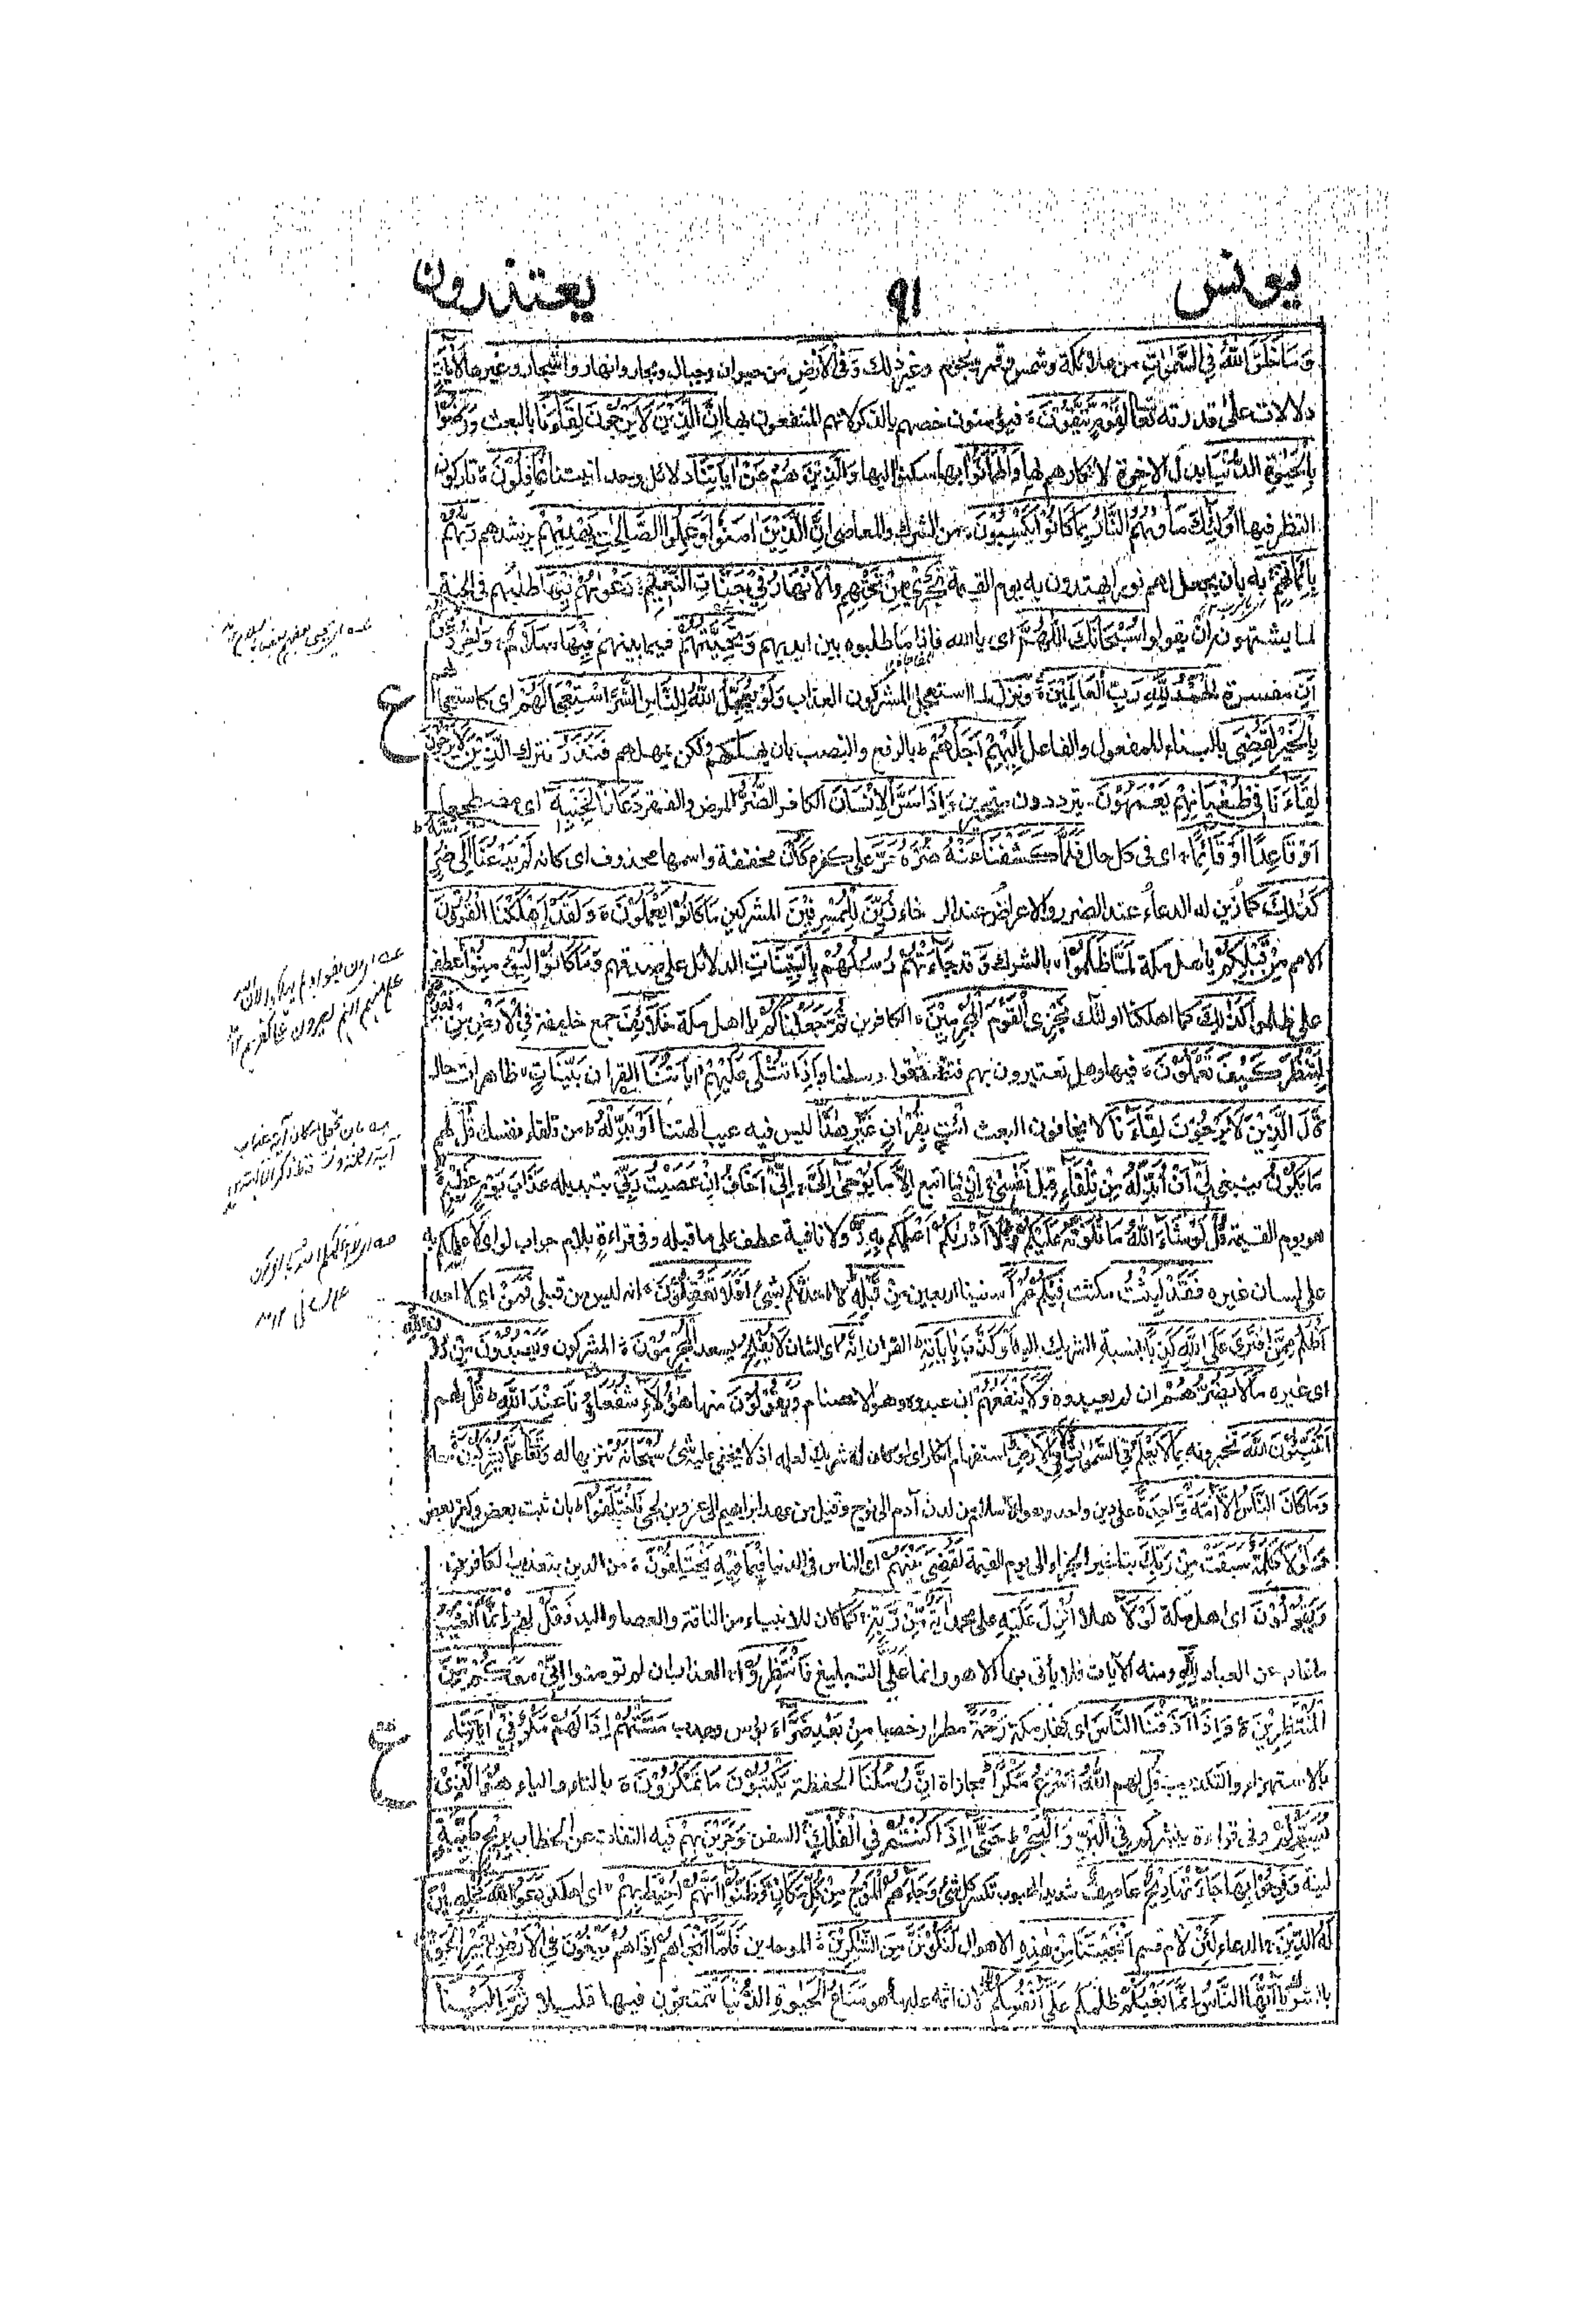 يونس
٩١
يعتذرون
وَمَا خَلَقَ اللّٰهُ فِي السَّمٰوٰتِ من ملائكة وشمس وقمر ونجوم وغير ذلك وَفِي الْاَرْضِ من حيوان وجبال وبحار وانهار واشجار وغيرها لَاٰيٰتٍ
دلالات على قدرته تعالى لِّقَوْمٍ يَّتَّقُوْنَ ۞ فيؤمنون خصهم بالذكر لانهم المنتفعون بها اِنَّ الَّذِيْنَ لَا يَرْجُوْنَ لِقَآءَنَا بالبعث وَرَضُوْا
بِالْحَيٰوةِ الدُّنْيَا بدل الاخرة لانكارهم لها وَاطْمَاَنُّوْا بِهَا سكنوا اليها وَالَّذِيْنَ هُمْ عَنْ اٰيَاتِنَا دلائل وحدانيتنا غٰفِلُوْنَ ۞ تاركون
النظر فيها اُولٰٓئِكَ مَاْوٰىهُمُ النَّارُ بِمَا كَانُوْا يَكْسِبُوْنَ ۞ من الشرك والمعاصى اِنَّ الَّذِيْنَ اٰمَنُوْا وَعَمِلُوا الصّٰلِحٰتِ يَهْدِيْهِمْ يرشدهم رَبُّهُمْ
بِاِيْمَانِهِمْ به بان يجعل لهم نورا يهتدون به يوم القيمة تَجْرِيْ مِنْ تَحْتِهِمُ الْاَنْهَارُ فِيْ جَنّٰتِ النَّعِيْمِ ۞ دَعْوٰىهُمْ فِيْهَا طلبهم فى الجنة
لما يشتهون ان يقولوا سُبْحَانَكَ اللّٰهُمَّ اى يا الله فاذا ما طلبوه بين ايديهم وَتَحِيَّتُهُمْ فيما بينهم فِيْهَا سَلَامٌ ۚ وَاٰخِرُ دَعْوٰىهُمْ
اَنِ مفسرة الْحَمْدُ لِلّٰهِ رَبِّ الْعَالَمِيْنَ ۞ ونزل لما استعجل المشركون العذاب وَلَوْ يُعَجِّلُ اللّٰهُ لِلنَّاسِ الشَّرَّ اسْتِعْجَالَهُمْ اى كاستعجالهم
بِالْخَيْرِ لَقُضِيَ بالبناء للمفعول والفاعل اِلَيْهِمْ اَجَلُهُمْ ط بالرفع والنصب بان يهلكهم ولكن يمهلهم فَنَذَرُ نترك الَّذِيْنَ لَا يَرْجُوْنَ
لِقَآءَنَا فِيْ طُغْيَانِهِمْ يَعْمَهُوْنَ ۞ يترددون متحيرين وَاِذَا مَسَّ الْاِنْسَانَ الكافر الضُّرُّ المرض والفقر دَعَانَا لِجَنْبِهٖٓ اى مضطجعا
اَوْ قَاعِدًا اَوْ قَآئِمًا ۚ اى فى كل حال فَلَمَّا كَشَفْنَا عَنْهُ ضُرَّهٗ مَرَّ على كفره كَاَنْ مخففة واسمها محذوف اى كانه لَّمْ يَدْعُنَآ اِلٰى ضُرٍّ
كَذٰلِكَ كما زين له الدعاء عند الضر والاعراض عند الرخاء زُيِّنَ لِلْمُسْرِفِيْنَ المشركين مَا كَانُوْا يَعْمَلُوْنَ ۞ وَلَقَدْ اَهْلَكْنَا الْقُرُوْنَ
الامم مِنْ قَبْلِكُمْ يا اهل مكة لَمَّا ظَلَمُوْا ۙ بالشرك وَقد جَآءَتْهُمْ رُسُلُهُمْ بِالْبَيِّنَاتِ الدلائل على صدقهم وَمَا كَانُوْا لِيُؤْمِنُوْا عطف
على ظلموا كَذٰلِكَ كما اهلكنا اولئك نَجْزِي الْقَوْمَ الْمُجْرِمِيْنَ ۞ الكافرين ثُمَّ جَعَلْنَاكُمْ يا اهل مكة خَلَآئِفَ جمع خليفة فِي الْاَرْضِ مِنْ بَعْدِهِمْ
لِنَنْظُرَ كَيْفَ تَعْمَلُوْنَ ۞ فيها وهل تعتبرون بهم فتصدقوا رسلنا وَاِذَا تُتْلٰى عَلَيْهِمْ اٰيَاتُنَا القران بَيِّنَاتٍ ۙ ظاهرات حال
قَالَ الَّذِيْنَ لَا يَرْجُوْنَ لِقَآءَنَا لا يخافون البعث ائْتِ بِقُرْاٰنٍ غَيْرِ هٰذَآ ليس فيه عيب الهتنا اَوْ بَدِّلْهُ ط من تلقاء نفسك قُلْ لهم
مَا يَكُوْنُ ينبغى لِيْٓ اَنْ اُبَدِّلَهٗ مِنْ تِلْقَآءِ قبل نَفْسِيْ ۚ اِنْ ما اَتَّبِعُ اِلَّا مَا يُوْحٰٓى اِلَيَّ ۚ اِنِّيْٓ اَخَافُ اِنْ عَصَيْتُ رَبِّيْ بتبديله عَذَابَ يَوْمٍ عَظِيْمٍ ۞
هو يوم القيمة قُلْ لَّوْ شَآءَ اللّٰهُ مَا تَلَوْتُهٗ عَلَيْكُمْ وَلَآ اَدْرٰىكُمْ اعلمكم بِهٖ ۖ ولا نافية عطف على ما قبله وفى قراءة بلام جواب لو اى لاعلمكم به
على لسان غيرى فَقَدْ لَبِثْتُ مكثت فِيْكُمْ عُمُرًا سنينا اربعين مِّنْ قَبْلِهٖ ط لا احدثكم بشئ اَفَلَا تَعْقِلُوْنَ ۞ انه ليس من قبلى فَمَنْ اى لا احد
اَظْلَمُ مِمَّنِ افْتَرٰى عَلَى اللّٰهِ كَذِبًا بنسبة الشريك اليه اَوْ كَذَّبَ بِاٰيَاتِهٖ ط القران اِنَّهٗ اى الشان لَا يُفْلِحُ يسعد الْمُجْرِمُوْنَ ۞ المشركون وَيَعْبُدُوْنَ مِنْ دُوْنِ اللّٰهِ
اى غيره مَا لَا يَضُرُّهُمْ ان لم يعبدوه وَلَا يَنْفَعُهُمْ ان عبدوه وهو الاصنام وَيَقُوْلُوْنَ عنها هٰٓؤُلَآءِ شُفَعَآؤُنَا عِنْدَ اللّٰهِ ط قُلْ لهم
اَتُنَبِّئُوْنَ اللّٰهَ تخبرونه بِمَا لَا يَعْلَمُ فِي السَّمٰوٰتِ وَلَا فِي الْاَرْضِ ط استفهام انكار اى لو كان له شريك لعلمه اذ لا يخفى عليه شئ سُبْحَانَهٗ تنزيها له وَتَعَالٰى عَمَّا يُشْرِكُوْنَ ۞ معه
وَمَا كَانَ النَّاسُ اِلَّآ اُمَّةً وَّاحِدَةً على دين واحد وهو الاسلام من لدن آدم الى نوح وقيل من عهد ابراهيم الى عمرو بن لحى فَاخْتَلَفُوْا ط بان ثبت بعض وكفر بعض
وَلَوْلَا كَلِمَةٌ سَبَقَتْ مِنْ رَّبِّكَ بتاخير الجزاء الى يوم القيمة لَقُضِيَ بَيْنَهُمْ اى الناس فى الدنيا فِيْمَا فِيْهِ يَخْتَلِفُوْنَ ۞ من الدين بتعذيب الكافرين
وَيَقُوْلُوْنَ اى اهل مكة لَوْلَآ هلا اُنْزِلَ عَلَيْهِ على محمد اٰيَةٌ مِّنْ رَّبِّهٖ ۚ كما كان للانبياء من الناقة والعصا واليد فَقُلْ لهم اِنَّمَا الْغَيْبُ
ما غاب عن العباد لِلّٰهِ ومنه الآيات فلا ياتى بها الا هو وانما على التبليغ فَانْتَظِرُوْا ۚ العذاب ان لم تومنوا اِنِّيْ مَعَكُمْ مِّنَ
الْمُنْتَظِرِيْنَ ۞ وَاِذَآ اَذَقْنَا النَّاسَ اى كفار مكة رَحْمَةً مطرا وخصبا مِّنْ بَعْدِ ضَرَّآءَ بؤس وجدب مَسَّتْهُمْ اِذَا لَهُمْ مَّكْرٌ فِيْٓ اٰيَاتِنَا
بالاستهزاء والتكذيب قُلِ لهم اللّٰهُ اَسْرَعُ مَكْرًا ط مجازاة اِنَّ رُسُلَنَا الحفظة يَكْتُبُوْنَ مَا تَمْكُرُوْنَ ۞ بالتاء والياء هُوَ الَّذِيْ
يُسَيِّرُكُمْ وفى قراءة ينشركم فِي الْبَرِّ وَالْبَحْرِ ط حَتّٰٓى اِذَا كُنْتُمْ فِي الْفُلْكِ السفن وَجَرَيْنَ بِهِمْ فيه التفات عن الخطاب بِرِيْحٍ طَيِّبَةٍ
لينة وَّفَرِحُوْا بِهَا جَآءَتْهَا رِيْحٌ عَاصِفٌ شديد الهبوب تكسر كل شئ وَّجَآءَهُمُ الْمَوْجُ مِنْ كُلِّ مَكَانٍ وَّظَنُّوْٓا اَنَّهُمْ اُحِيْطَ بِهِمْ ۙ اى اهلكوا دَعَوُا اللّٰهَ مُخْلِصِيْنَ
لَهُ الدِّيْنَ ۚ الدعاء لَئِنْ لام قسم اَنْجَيْتَنَا مِنْ هٰذِهٖ الاهوال لَنَكُوْنَنَّ مِنَ الشّٰكِرِيْنَ ۞ الموحدين فَلَمَّآ اَنْجَاهُمْ اِذَا هُمْ يَبْغُوْنَ فِي الْاَرْضِ بِغَيْرِ الْحَقِّ
بالشرك يٰٓاَيُّهَا النَّاسُ اِنَّمَا بَغْيُكُمْ ظلمكم عَلٰٓى اَنْفُسِكُمْ لان اثمه عليها هو مَتَاعُ الْحَيٰوةِ الدُّنْيَا تتمتعون فيها قليلا ثُمَّ اِلَيْنَا
ع
ع